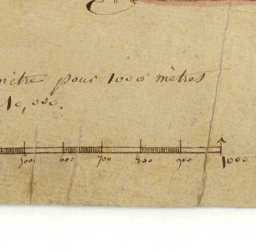 mètre pour 1000 mètres
10,000.
500 600 700 800 900 1000